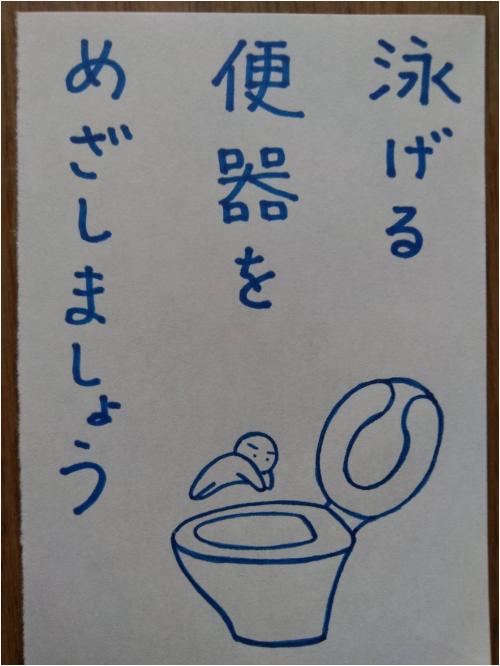 泳げる
便器を
めざしましょう